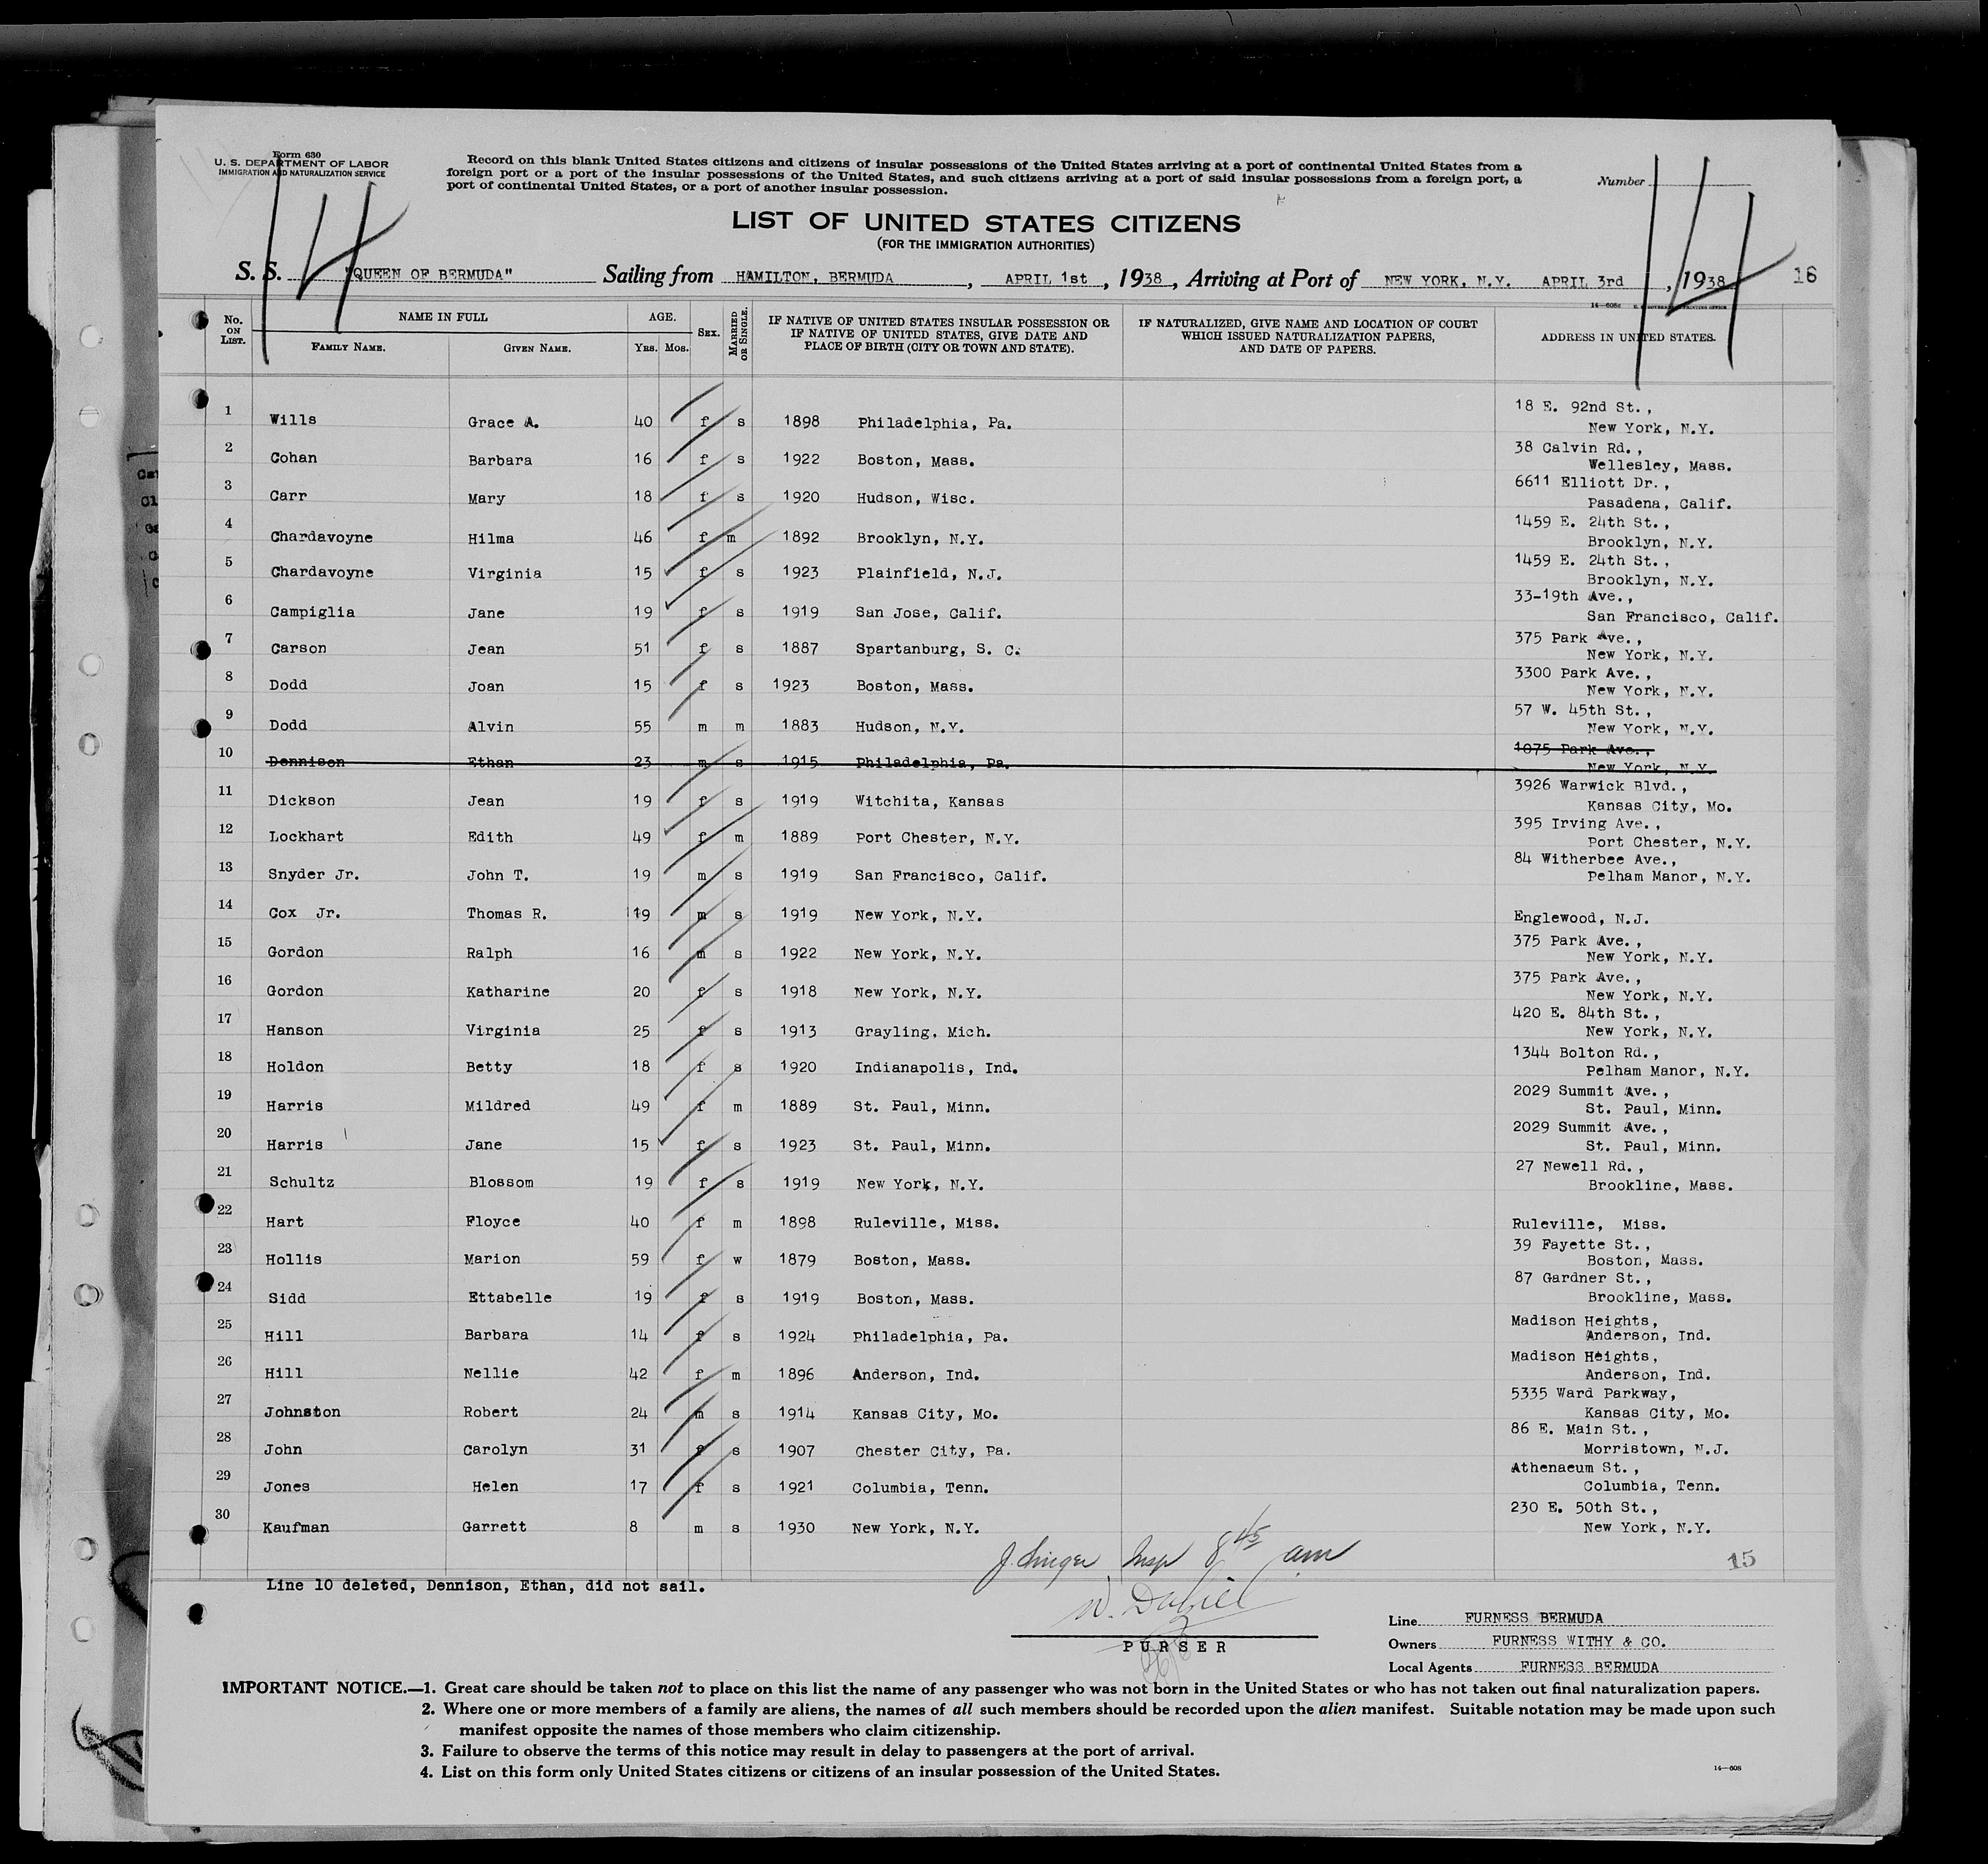 Form 630
U. S. DEPARTMENT OF LABOR
IMMIGRATION AND NATURALIZATION SERVICE
Record on this blank United States citizens and citizens of insular possessions of the United States arriving at a port of continental United States from a
foreign port or a port of the insular possessions of the United States, and such citizens arriving at a port of said insular possessions from a foreign port, a
port of continental United States, or a port of another insular possession.
Number
14
14
LIST OF UNITED STATES CITIZENS
(FOR THE IMMIGRATION AUTHORITIES)
S. S. "QUEEN OF BERMUDA" Sailing from HAMILTON, BERMUDA, APRIL 1st, 1938, Arriving at Port of NEW YORK, N.Y. APRIL 3rd, 1938 16
No. ON LIST. NAME IN FULL AGE. SEX. MARRIED OR SINGLE. IF NATIVE OF UNITED STATES INSULAR POSSESSION OR IF NATIVE OF UNITED STATES, GIVE DATE AND PLACE OF BIRTH (CITY OR TOWN AND STATE). IF NATURALIZED, GIVE NAME AND LOCATION OF COURT WHICH ISSUED NATURALIZATION PAPERS, AND DATE OF PAPERS. ADDRESS IN UNITED STATES.
FAMILY NAME. GIVEN NAME. YRS. MOS.
1 Wills Grace A. 40 f s 1898 Philadelphia, Pa. 18 E. 92nd St.,
New York, N.Y.
2 Cohan Barbara 16 f s 1922 Boston, Mass. 38 Calvin Rd.,
Wellesley, Mass.
3 Carr Mary 18 f s 1920 Hudson, Wisc. 6611 Elliott Dr.,
Pasadena, Calif.
4 Chardavoyne Hilma 46 f m 1892 Brooklyn, N.Y. 1459 E. 24th St.,
Brooklyn, N.Y.
5 Chardavoyne Virginia 15 f s 1923 Plainfield, N.J. 1459 E. 24th St.,
Brooklyn, N.Y.
6 Campiglia Jane 19 f s 1919 San Jose, Calif. 33-19th Ave.,
San Francisco, Calif.
7 Carson Jean 51 f s 1887 Spartanburg, S. C. 375 Park Ave.,
New York, N.Y.
8 Dodd Joan 15 f s 1923 Boston, Mass. 3300 Park Ave.,
New York, N.Y.
9 Dodd Alvin 55 m m 1883 Hudson, N.Y. 57 W. 45th St.,
New York, N.Y.
10 Dennison Ethan 23 m s 1915 Philadelphia, Pa. 1075 Park Ave.,
New York, N.Y.
11 Dickson Jean 19 f s 1919 Witchita, Kansas 3926 Warwick Blvd.,
Kansas City, Mo.
12 Lockhart Edith 49 f m 1889 Port Chester, N.Y. 395 Irving Ave.,
Port Chester, N.Y.
13 Snyder Jr. John T. 19 m s 1919 San Francisco, Calif. 84 Witherbee Ave.,
Pelham Manor, N.Y.
14 Cox Jr. Thomas R. 19 m s 1919 New York, N.Y. Englewood, N.J.
15 Gordon Ralph 16 m s 1922 New York, N.Y. 375 Park Ave.,
New York, N.Y.
16 Gordon Katharine 20 f s 1918 New York, N.Y. 375 Park Ave.,
New York, N.Y.
17 Hanson Virginia 25 f s 1913 Grayling, Mich. 420 E. 84th St.,
New York, N.Y.
18 Holdon Betty 18 f s 1920 Indianapolis, Ind. 1344 Bolton Rd.,
Pelham Manor, N.Y.
19 Harris Mildred 49 f m 1889 St. Paul, Minn. 2029 Summit Ave.,
St. Paul, Minn.
20 Harris Jane 15 f s 1923 St. Paul, Minn. 2029 Summit Ave.,
St. Paul, Minn.
21 Schultz Blossom 19 f s 1919 New York, N.Y. 27 Newell Rd.,
Brookline, Mass.
22 Hart Floyce 40 f m 1898 Ruleville, Miss. Ruleville, Miss.
23 Hollis Marion 59 f w 1879 Boston, Mass. 39 Fayette St.,
Boston, Mass.
24 Sidd Ettabelle 19 f s 1919 Boston, Mass. 87 Gardner St.,
Brookline, Mass.
25 Hill Barbara 14 f s 1924 Philadelphia, Pa. Madison Heights,
Anderson, Ind.
26 Hill Nellie 42 f m 1896 Anderson, Ind. Madison Heights,
Anderson, Ind.
27 Johnston Robert 24 m s 1914 Kansas City, Mo. 5335 Ward Parkway,
Kansas City, Mo.
28 John Carolyn 31 f s 1907 Chester City, Pa. 86 E. Main St.,
Morristown, N.J.
29 Jones Helen 17 f s 1921 Columbia, Tenn. Athenaeum St.,
Columbia, Tenn.
30 Kaufman Garrett 8 m s 1930 New York, N.Y. 230 E. 50th St.,
New York, N.Y.
Insp 8 45 am
15
Line 10 deleted, Dennison, Ethan, did not sail.
PURSER
Line FURNESS BERMUDA
Owners FURNESS WITHY & CO.
Local Agents FURNESS BERMUDA
IMPORTANT NOTICE.—1. Great care should be taken not to place on this list the name of any passenger who was not born in the United States or who has not taken out final naturalization papers.
2. Where one or more members of a family are aliens, the names of all such members should be recorded upon the alien manifest. Suitable notation may be made upon such
manifest opposite the names of those members who claim citizenship.
3. Failure to observe the terms of this notice may result in delay to passengers at the port of arrival.
4. List on this form only United States citizens or citizens of an insular possession of the United States.
14—608